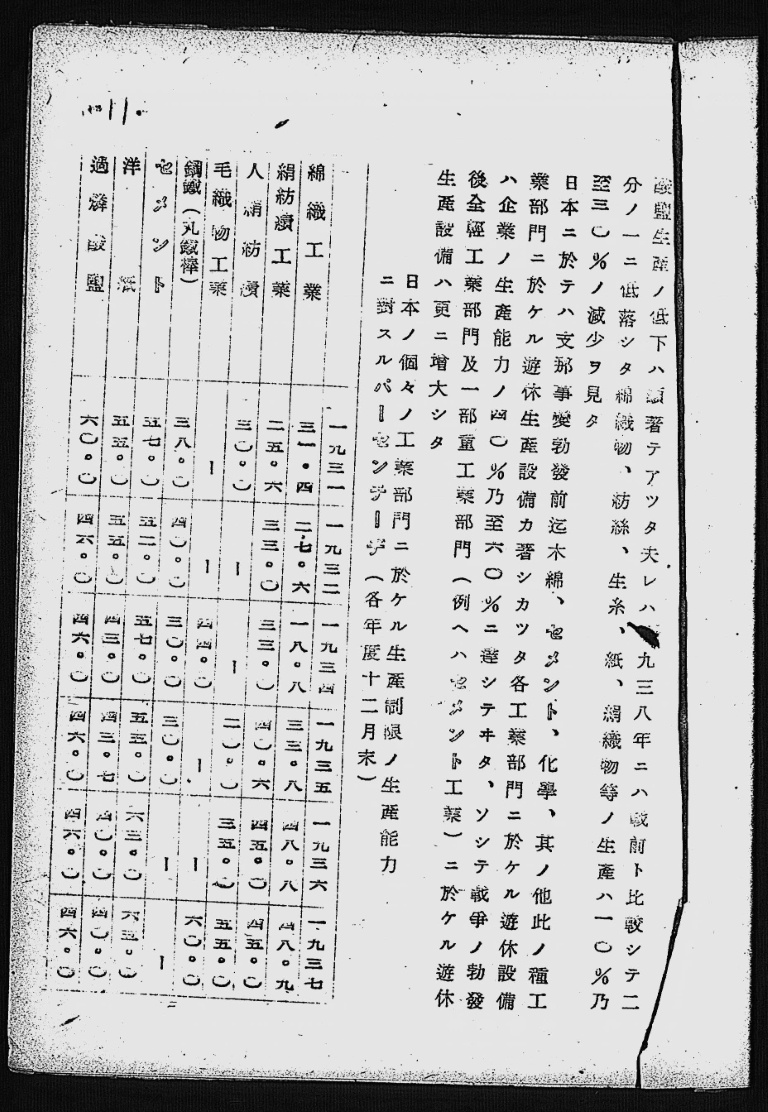 酸鹽生産ノ低下ハ顯著テアツタ夫レハ九三八年ニハ戰前ト比較シテ二
分ノ一ニ低落シタ綿織物、紡絲、生糸、紙、絹織物等ノ生産ハ一〇%乃
至三〇%ノ減少ヲ見タ
日本ニ於テハ支那事變勃發前迄木綿、セメント、化學、其ノ他此ノ種工
業部門ニ於ケル遊休生産設備カ著シカツタ各工業部門ニ於ケル遊休設備
ハ企業ノ生産能力ノ四〇%乃至六〇%ニ達シテヰタ、ソシテ戰爭ノ勃發
後全輕工業部門及一部重工業部門(例ヘハセメント工業)ニ於ケル遊休
生産設備ハ更ニ增大シタ
日本ノ個々ノ工業部門ニ於ケル生産制限ノ生産能力
ニ對スルパーセンテーヂ(各年度十二月末)
一九三一 一九三二 一九三四 一九三五 一九三六 一九三七
綿織工業 三一・四 二七・六 一八・八 三三・八 四八・八 四八・九
絹紡績工業 二五・六 三三・〇 三三・〇 四〇・六 四五・〇 四五・〇
人絹紡績 三〇・〇 ー ー 二〇・〇 三五・〇 五五・〇
毛織物工業 ー ー 四四・〇 ー ー 六〇・〇
鋼鐵(丸鐵棒) 三八・〇 四〇・〇 三〇・〇 三〇・〇 ー ー
セメント 五七・〇 五二・〇 五七・〇 五五・〇 六三・〇 六五・〇
洋紙 五五・〇 五五・〇 四三・〇 四三・七 四〇・〇 四〇・〇
過燐酸鹽 六〇・〇 四六・〇 四六・〇 四六・〇 四六・〇 四六・〇